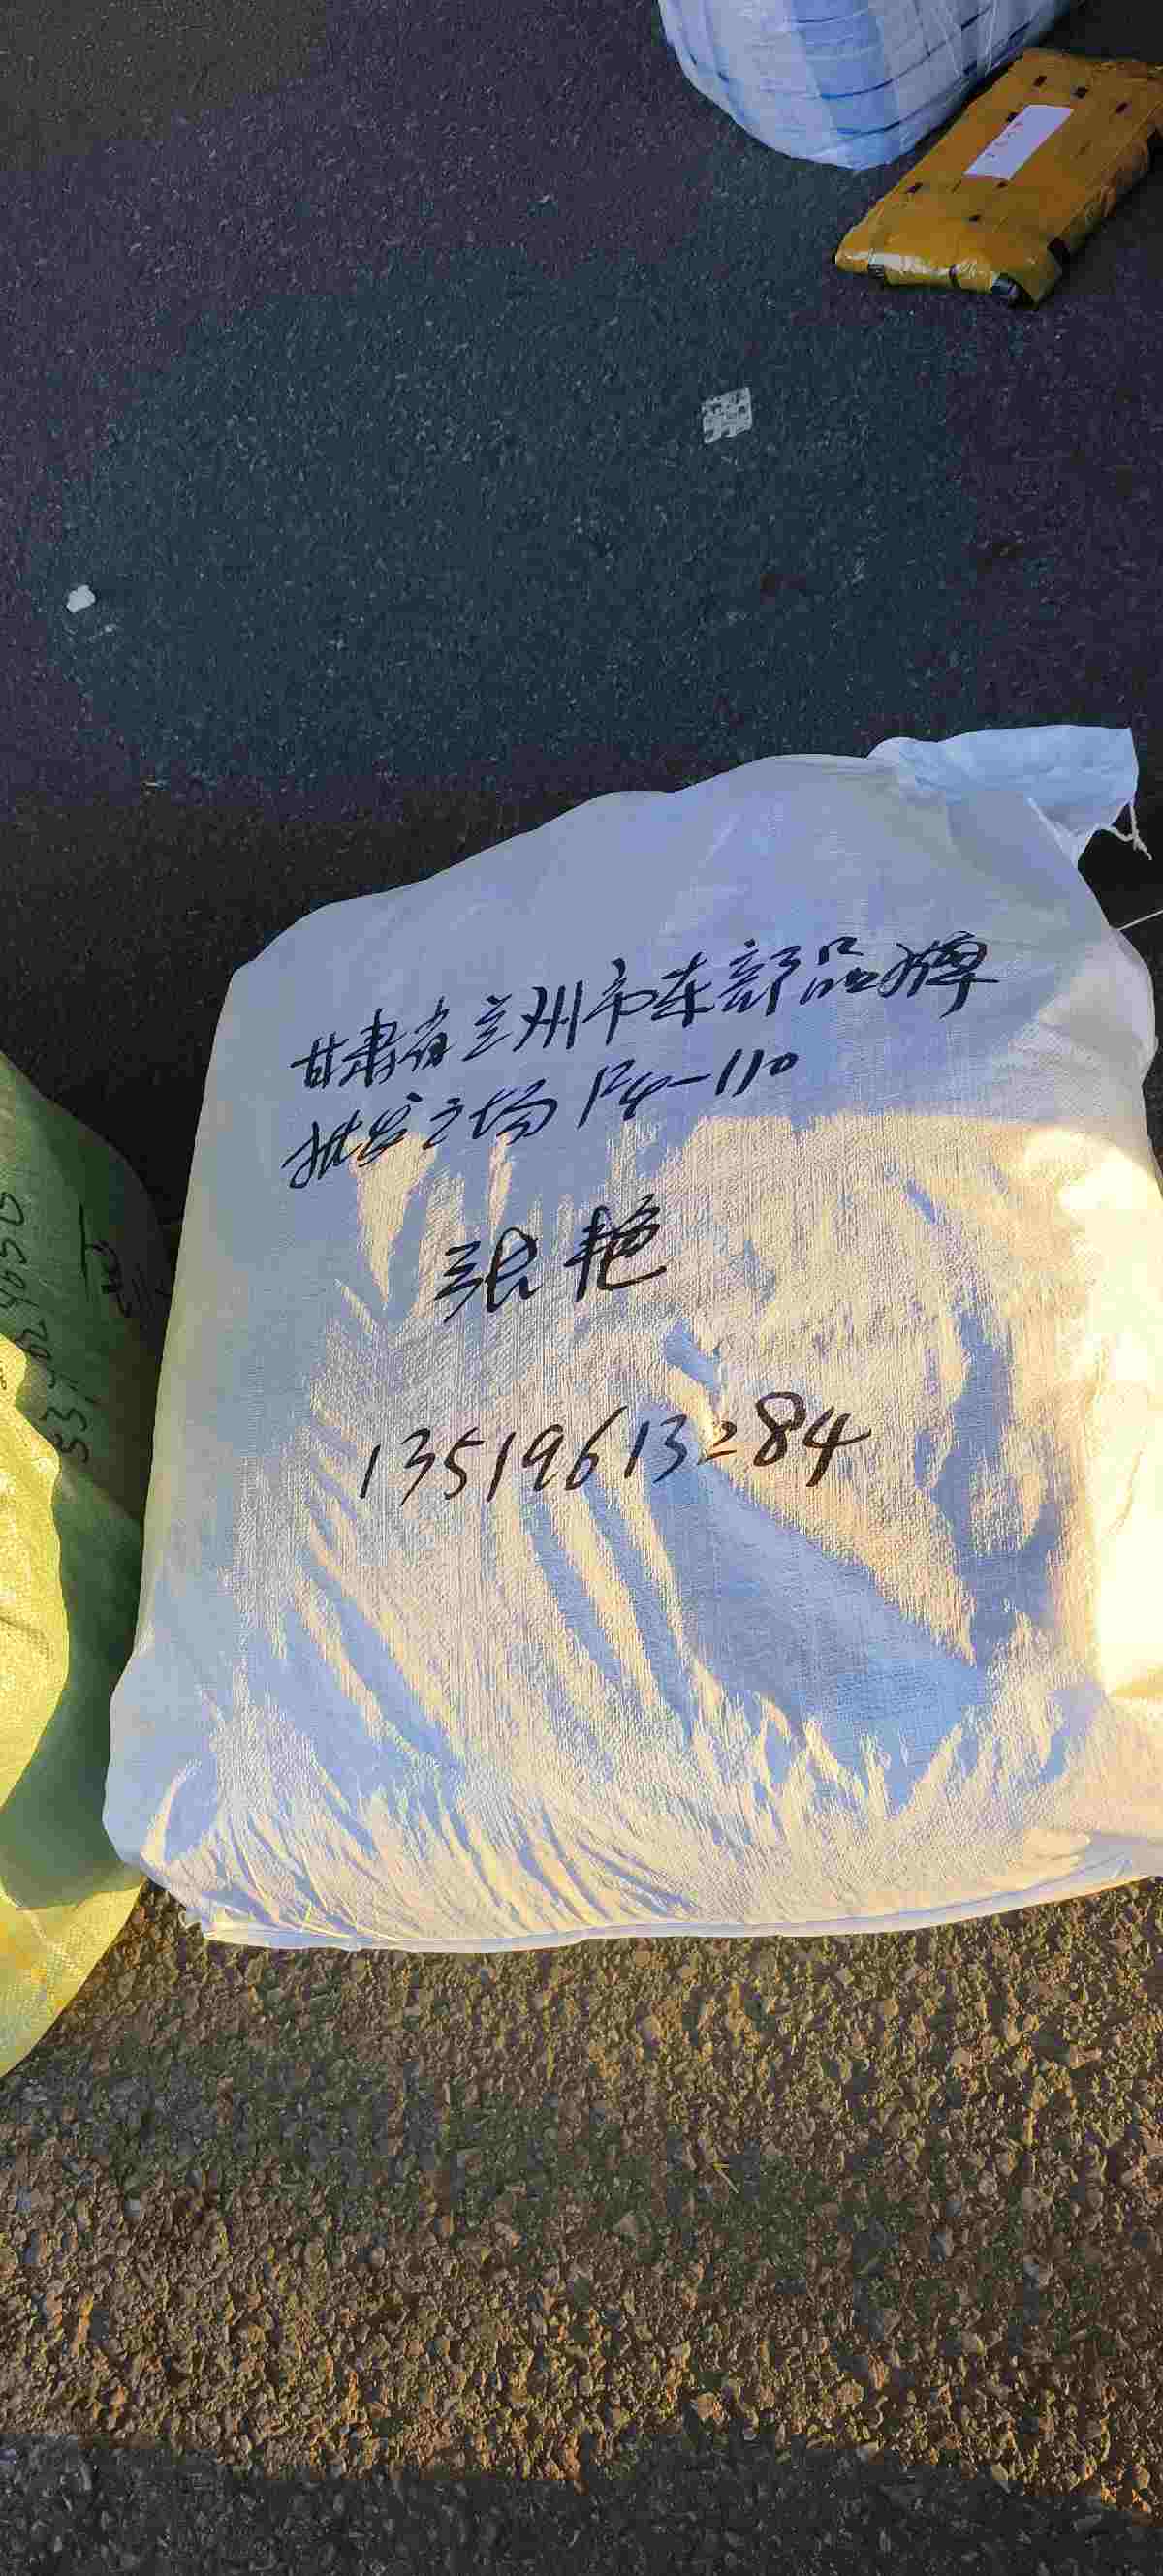 甘肃省兰州市东部品牌
批发广场1F4-110
张艳
13519613284